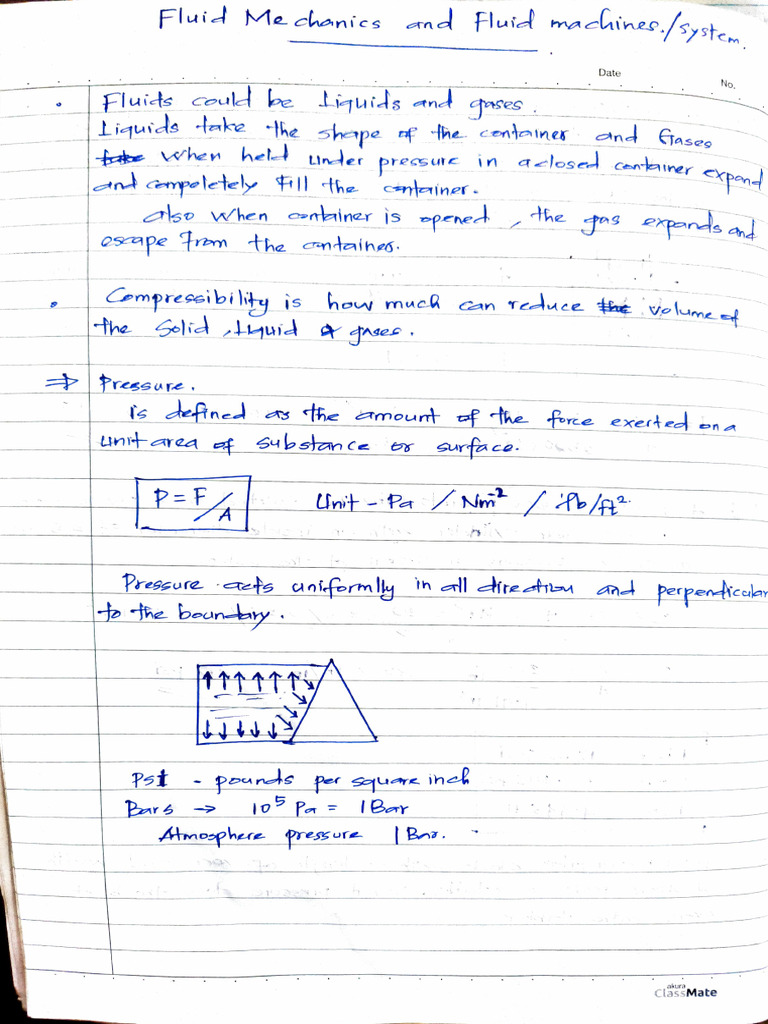 Fluid Mechanics and Fluid machines./system.
Date
No.
• Fluids could be Liquids and gases.
Liquids take the shape of the container and Gases
take when held under pressure in a closed container expand
and compoletely fill the container.
also when container is opened, the gas expands and
escape from the container.
• Compressibility is how much can reduce the volume of
the solid, liquid or gases.
⇒ Pressure.
is defined as the amount of the force exerted on a
unit area of substance or surface.
P = F/A Unit - Pa / Nm⁻² / lb/ft².
Pressure acts uniformlly in all direction and perpendicular
to the boundary.
PSI - pounds per square inch
Bars → 10⁵ Pa = 1 Bar
Atmosphere pressure 1 Bar.
akura
ClassMate